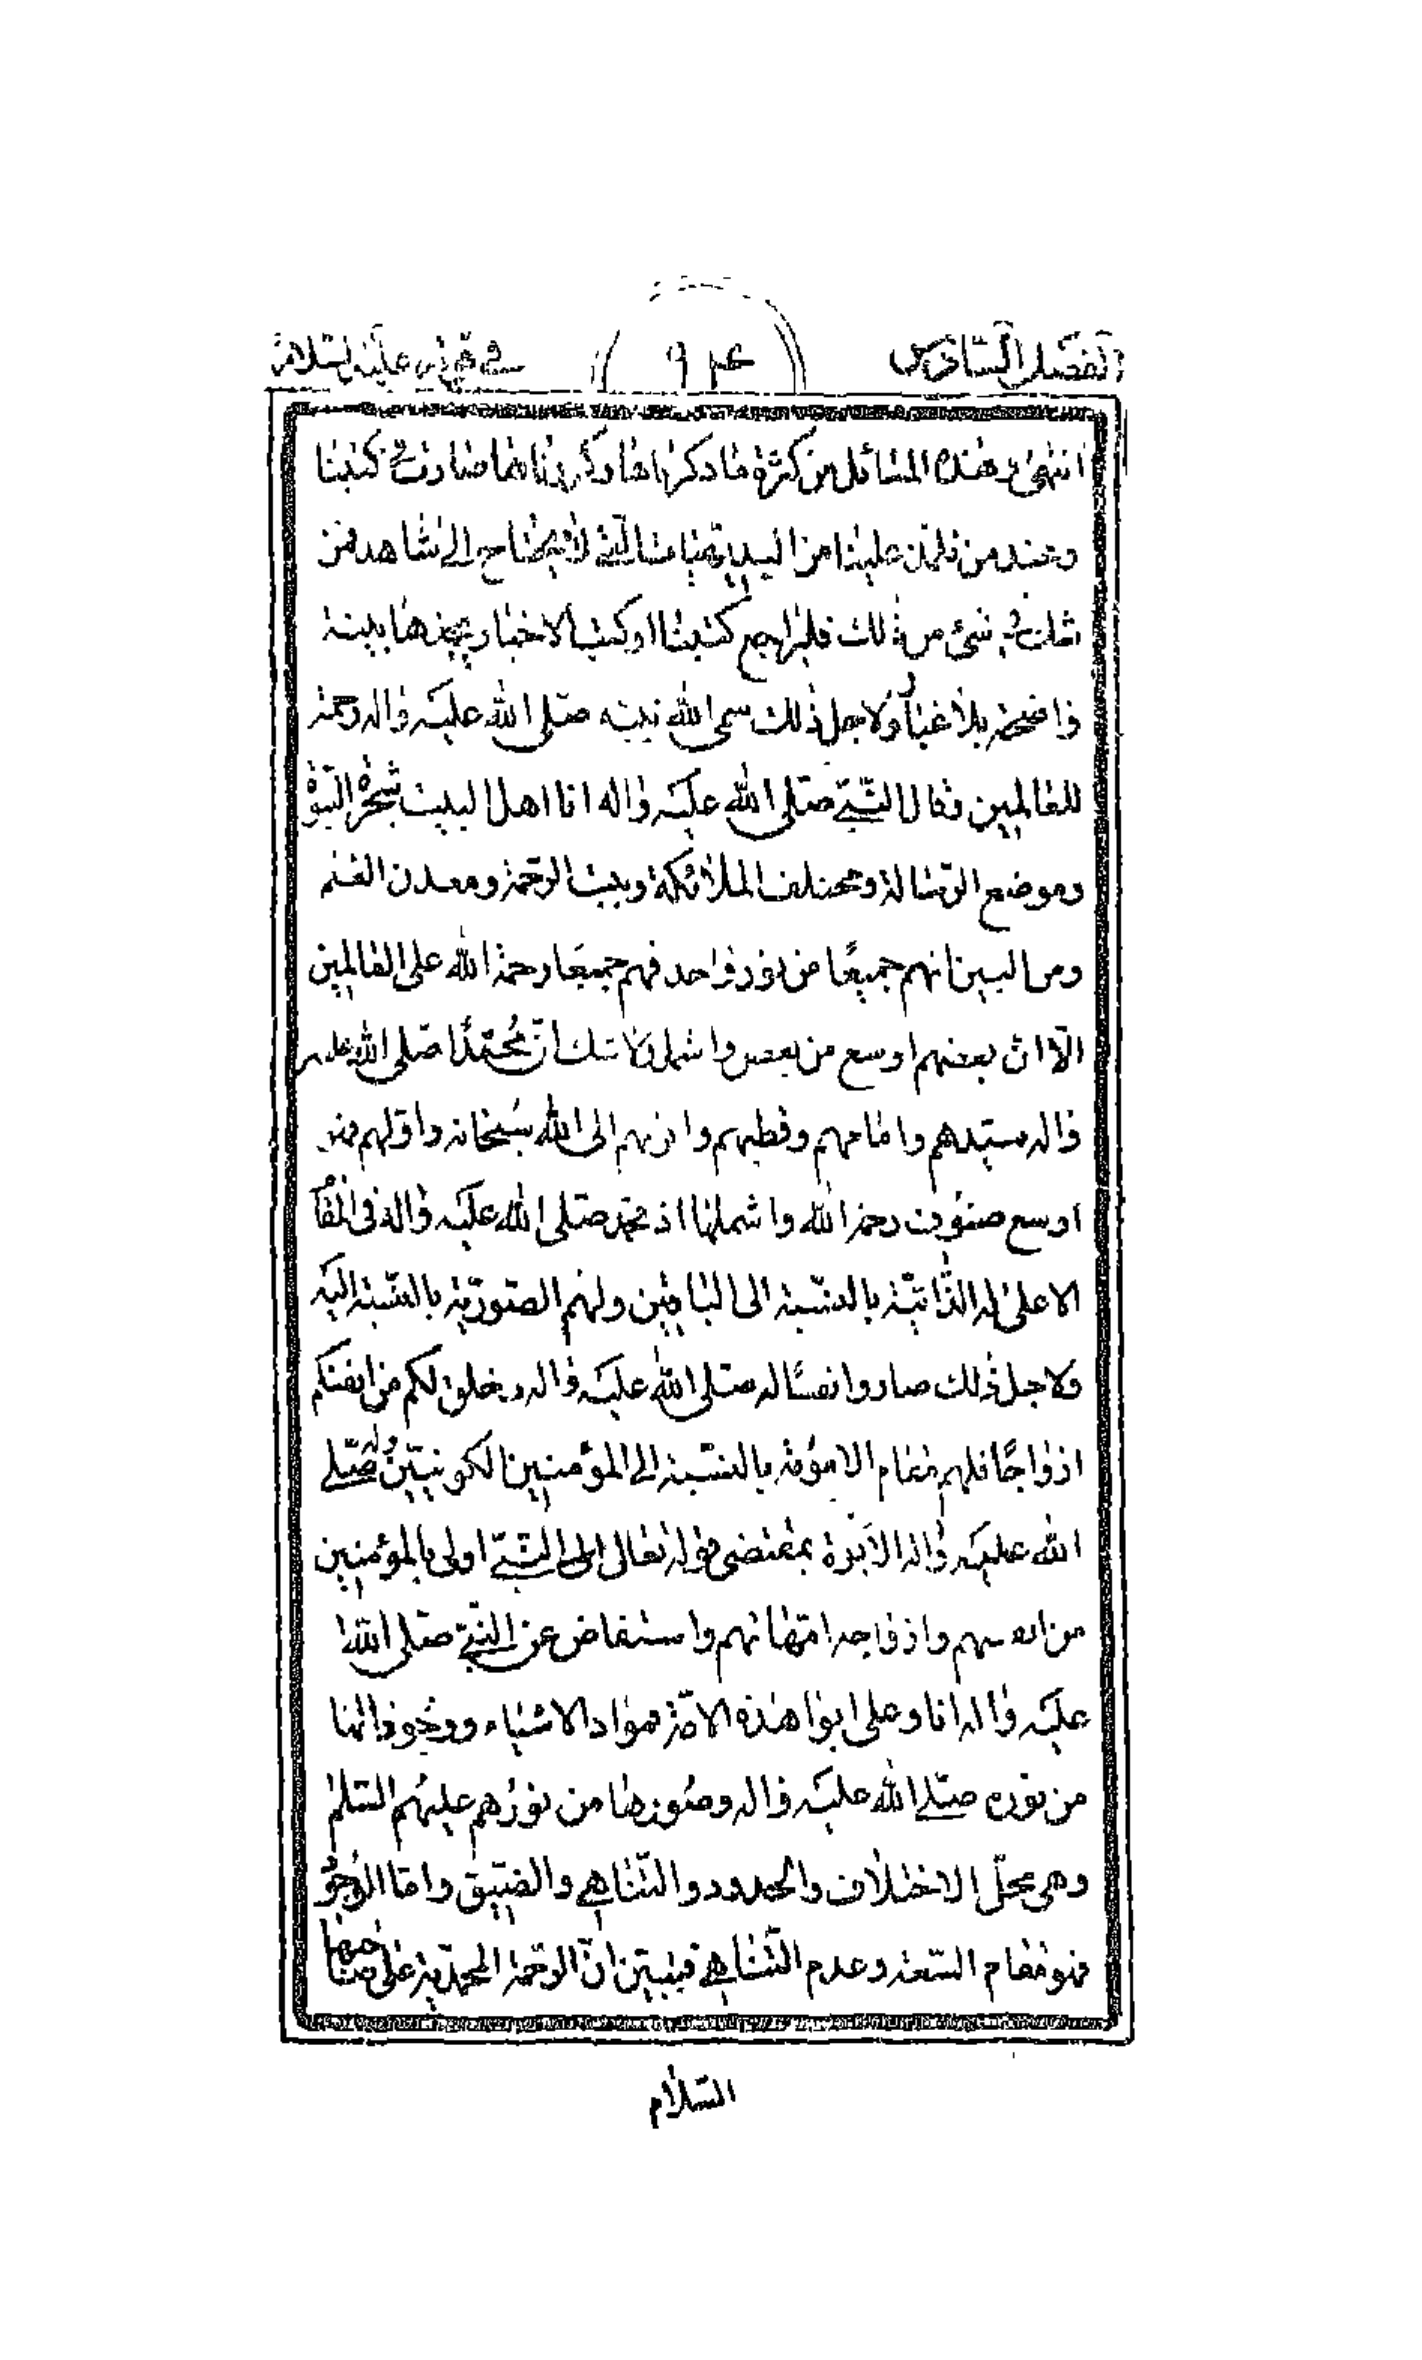 الفصل السادس
٩٤
في قوله عليه السلام
انتهى وهذه المسائل من كثرة ما ذكرناها وكررناها صارت في كتبنا
وعند من تلمذ علينا من البديهيات التي لا يحتاج الى شاهد فمن
شك في شئ من ذلك فليراجع كتبنا او كتب الاخبار يجدها بينة
واضحة بلا غبار ولاجل ذلك سمى الله نبيه صلى الله عليه واله رحمة
للعالمين وقال النبي صلى الله عليه واله انا اهل البيت شجرة النبوة
وموضع الرسالة ومختلف الملائكة وبيت الرحمة ومعدن العلم
ومن البين انهم جميعًا من نور واحد فهم جميعًا رحمة الله على العالمين
الا ان بعضهم اوسع من بعض واشمل ولا شك انّ محمدًا صلى الله عليه
واله سيدهم وامامهم وقطبهم واقربهم الى الله سبحانه واولهم فهو
اوسع صنوف رحمة الله واشملها اذ محمد صلى الله عليه واله في المقام
الاعلى له الذاتية بالنسبة الى الباقين ولهم الصورية بالنسبة اليه
ولاجل ذلك صاروا انفسًا له صلى الله عليه واله وخلق لكم من انفسكم
ازواجًا فلهم مقام الامومة بالنسبة الى المؤمنين الكونيين وله صلى
الله عليه واله الابوة بمقتضى قوله تعالى النبي اولى بالمؤمنين
من انفسهم وازواجه امهاتهم واستفاض عن النبي صلى الله
عليه واله انا وعلى ابوا هذه الامة فمواد الاشياء ووجوداتها
من نوره صلى الله عليه واله وصورها من نورهم عليهم السلام
وهى محل الاختلاف والحدود والتناهي والضيق واما الوجود
فهو مقام السعة وعدم التناهي فيتبين انّ الرحمة المحمدية على صاحبها
السلام